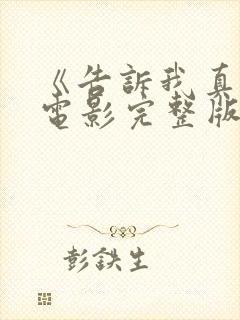 《告訴我真
電影完整版
彭鉄生